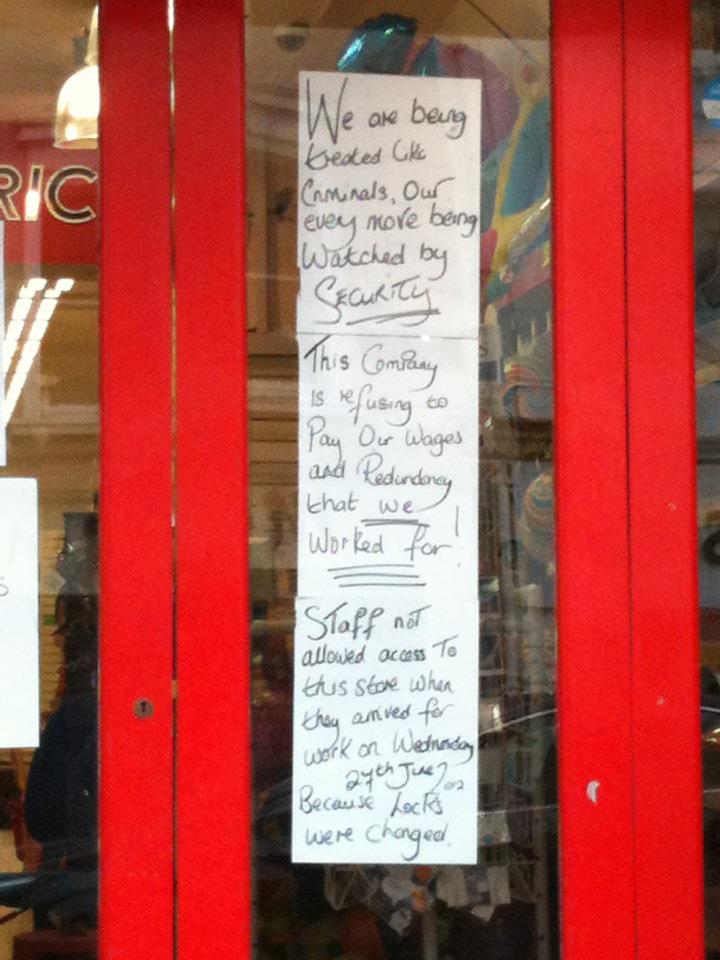 RIC
We are being
treated like
Criminals, Our
every move being
Watched by
SECURITY
This Company
is refusing to
Pay Our Wages
and Redundancy
that we
Worked for!
Staff not
allowed access To
this store when
they arrived for
work on Wednesday
27th June
Because Locks
were changed.
S